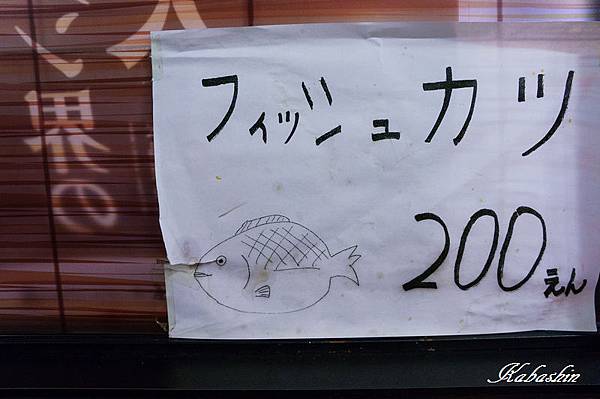 フィッシュカツ
200えん
界の
Kabashin